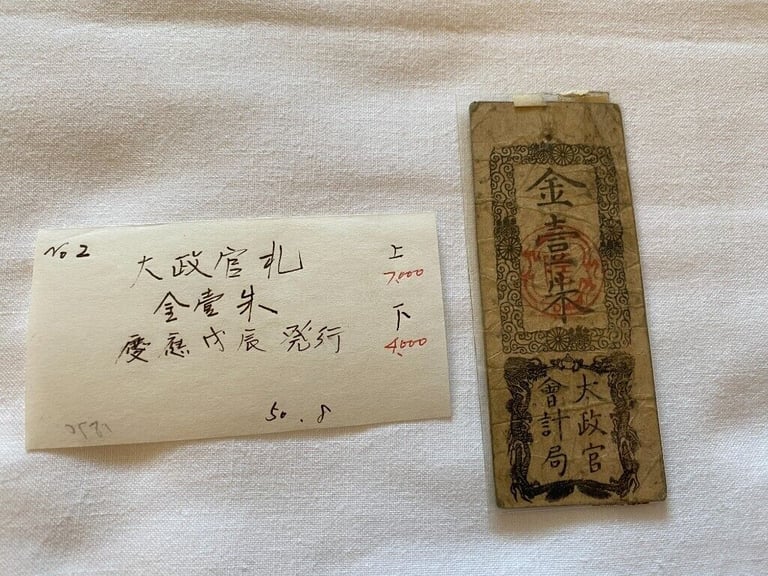 No 2
大政官札
金壹朱
慶應戊辰発行
上
7,000
下
4,000
50.8
金壹朱
大政官
會計局